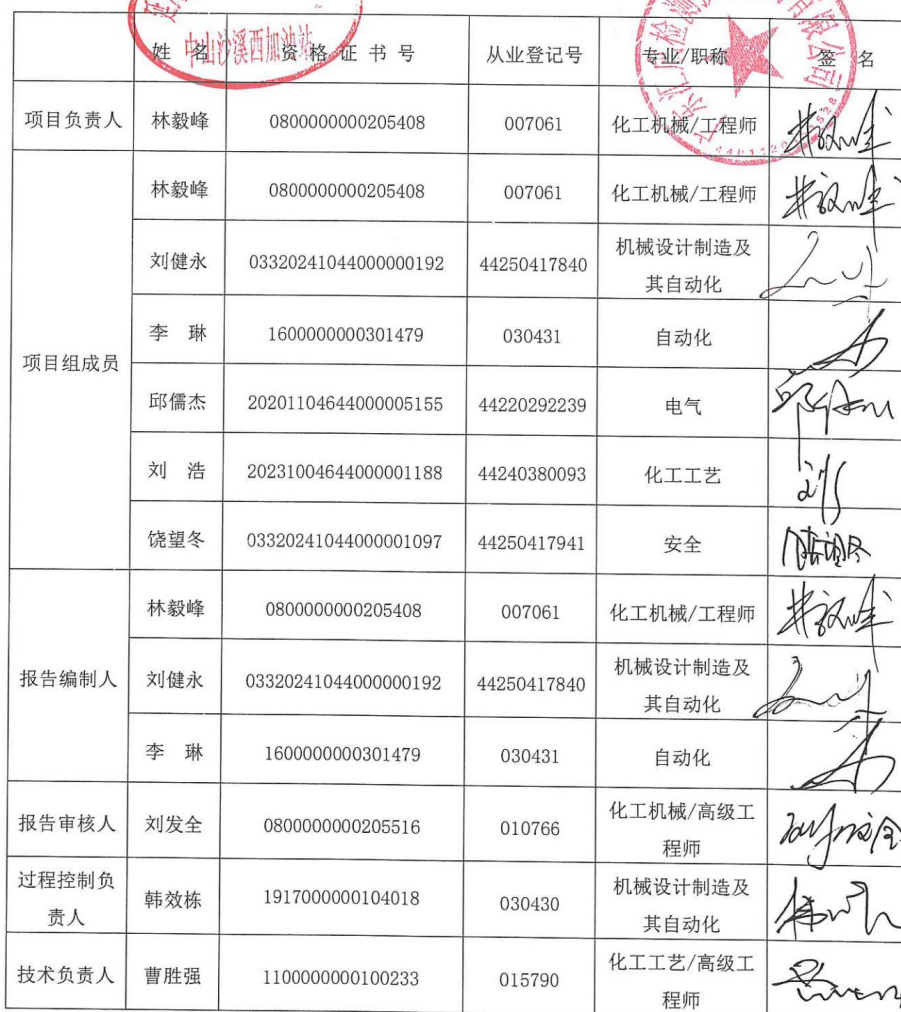 中山沙溪西加油站
姓 名 资 格 证 书 号 从业登记号 专业/职称 签 名
项目负责人 林毅峰 0800000000205408 007061 化工机械/工程师
项目组成员
林毅峰 0800000000205408 007061 化工机械/工程师
刘健永 03320241044000000192 44250417840 机械设计制造及
其自动化
李 琳 1600000000301479 030431 自动化
邱儒杰 20201104644000005155 44220292239 电气
刘 浩 20231004644000001188 44240380093 化工工艺
饶望冬 03320241044000001097 44250417941 安全
报告编制人
林毅峰 0800000000205408 007061 化工机械/工程师
刘健永 03320241044000000192 44250417840 机械设计制造及
其自动化
李 琳 1600000000301479 030431 自动化
报告审核人 刘发全 0800000000205516 010766 化工机械/高级工
程师
过程控制负
责人 韩效栋 1917000000104018 030430 机械设计制造及
其自动化
技术负责人 曹胜强 1100000000100233 015790 化工工艺/高级工
程师